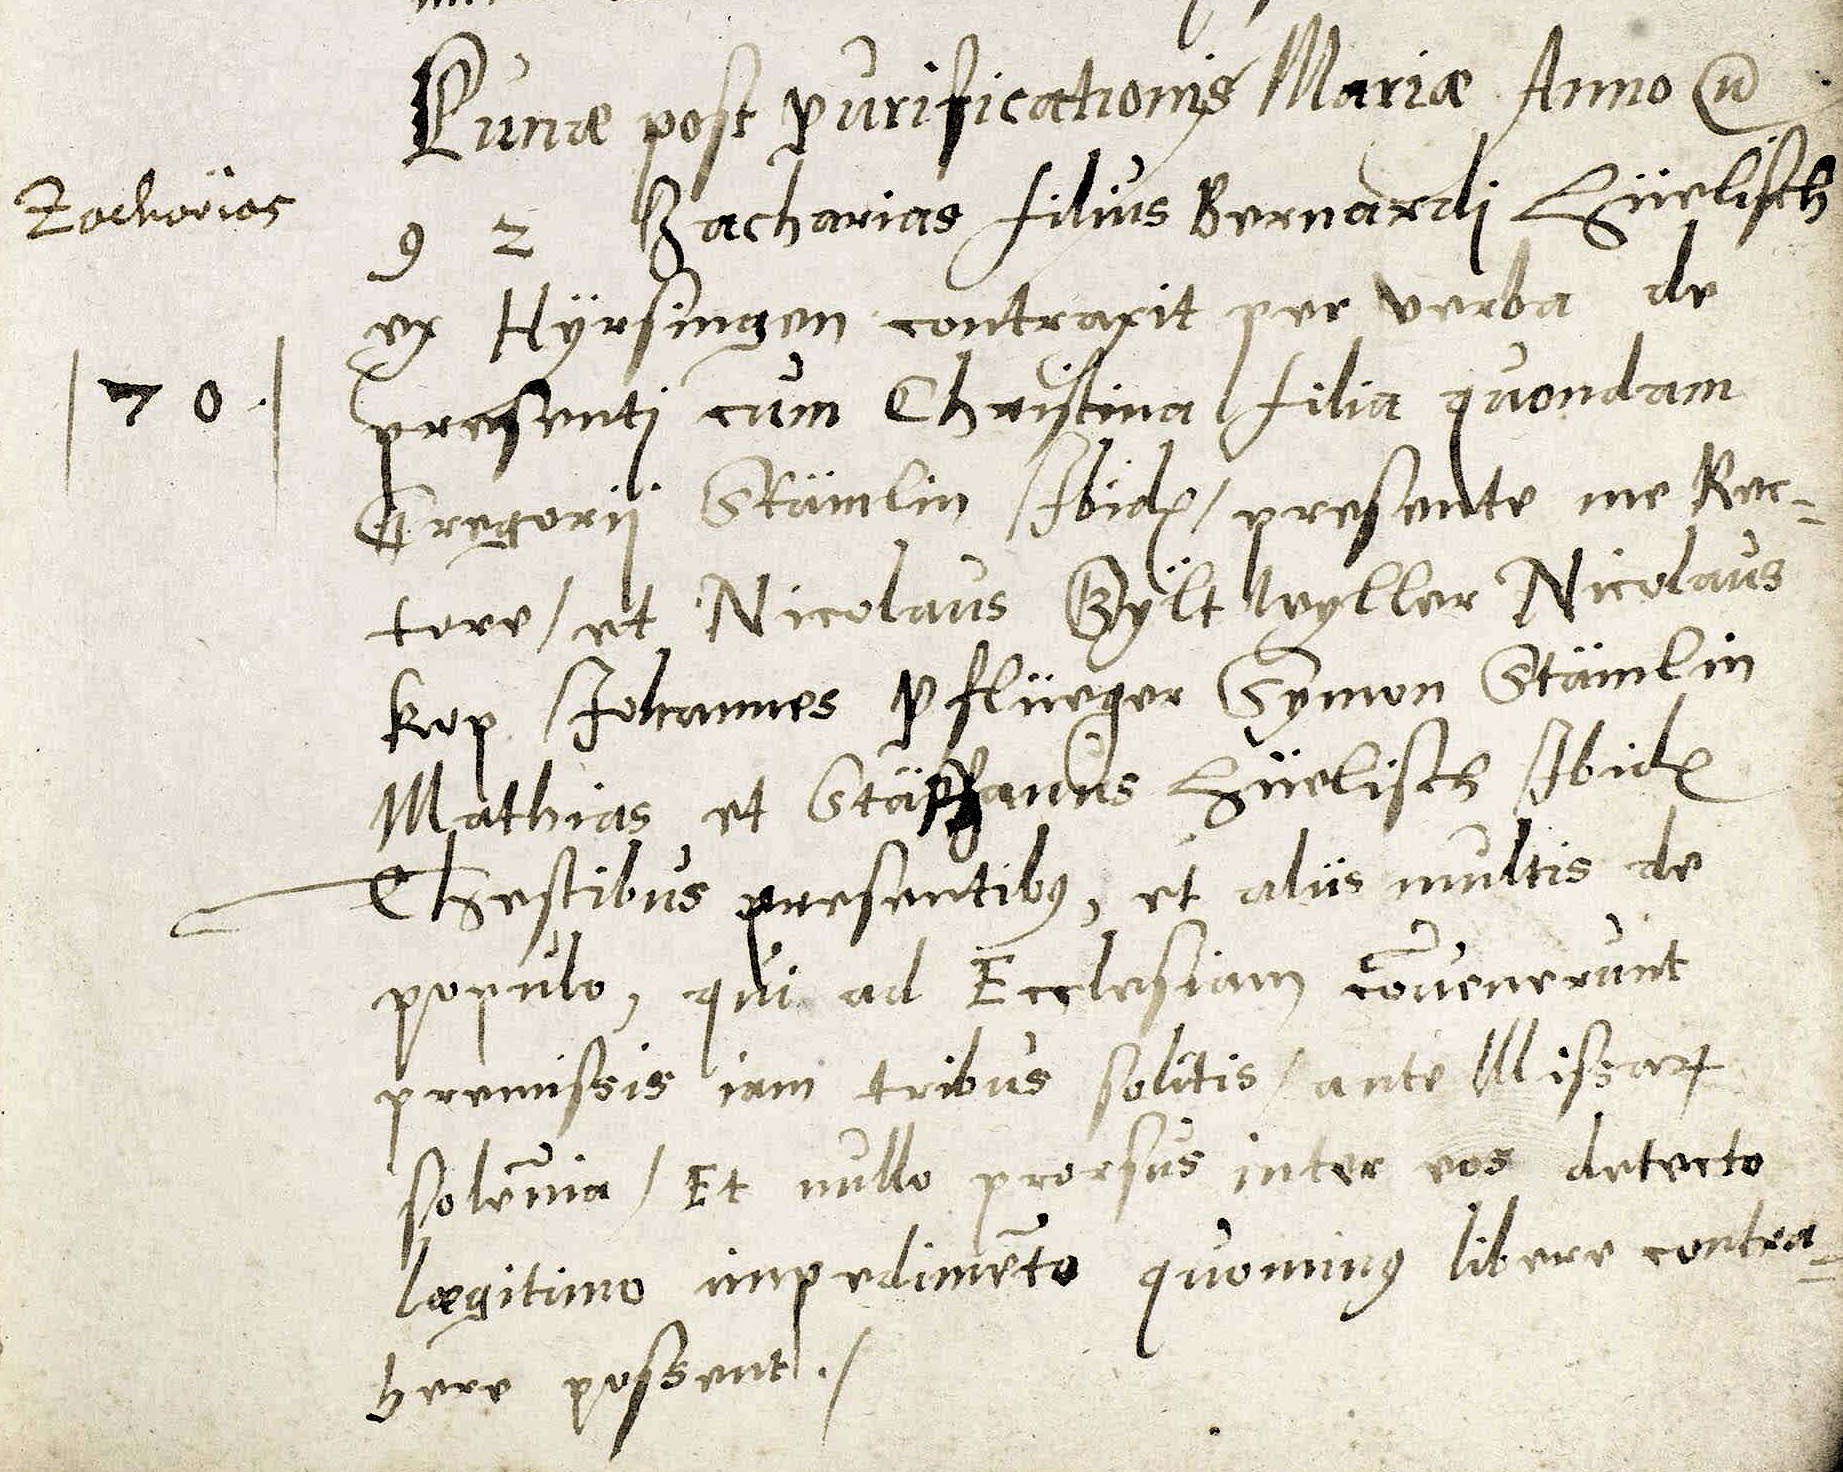 Lunæ post purificationis Mariæ Anno
Zacharias
9 2 Zacharias filius Bernardi Hüelisch
ex Hÿrsingen contraxit per verba de
70.
presenti cum Christina filia quondam
Gregorij Stämlin Ibid, / presente me Rec-
tore / et Nicolaus Bÿltwyller Nicolaus
kop Johannes Pflüeger Symon Stämlin
Mathias et Stäphanus Hüelisch Ibid
Thestibus presentibꝰ, et aliis multis de
populo, qui ad Ecclesiam cōuenerunt
premissis iam tribus solitis / ante Missaꝝ
solēnia / Et nullo prorsus inter eos detecto
lægitimo impedimēto quominꝰ libere contra=
here possent ./